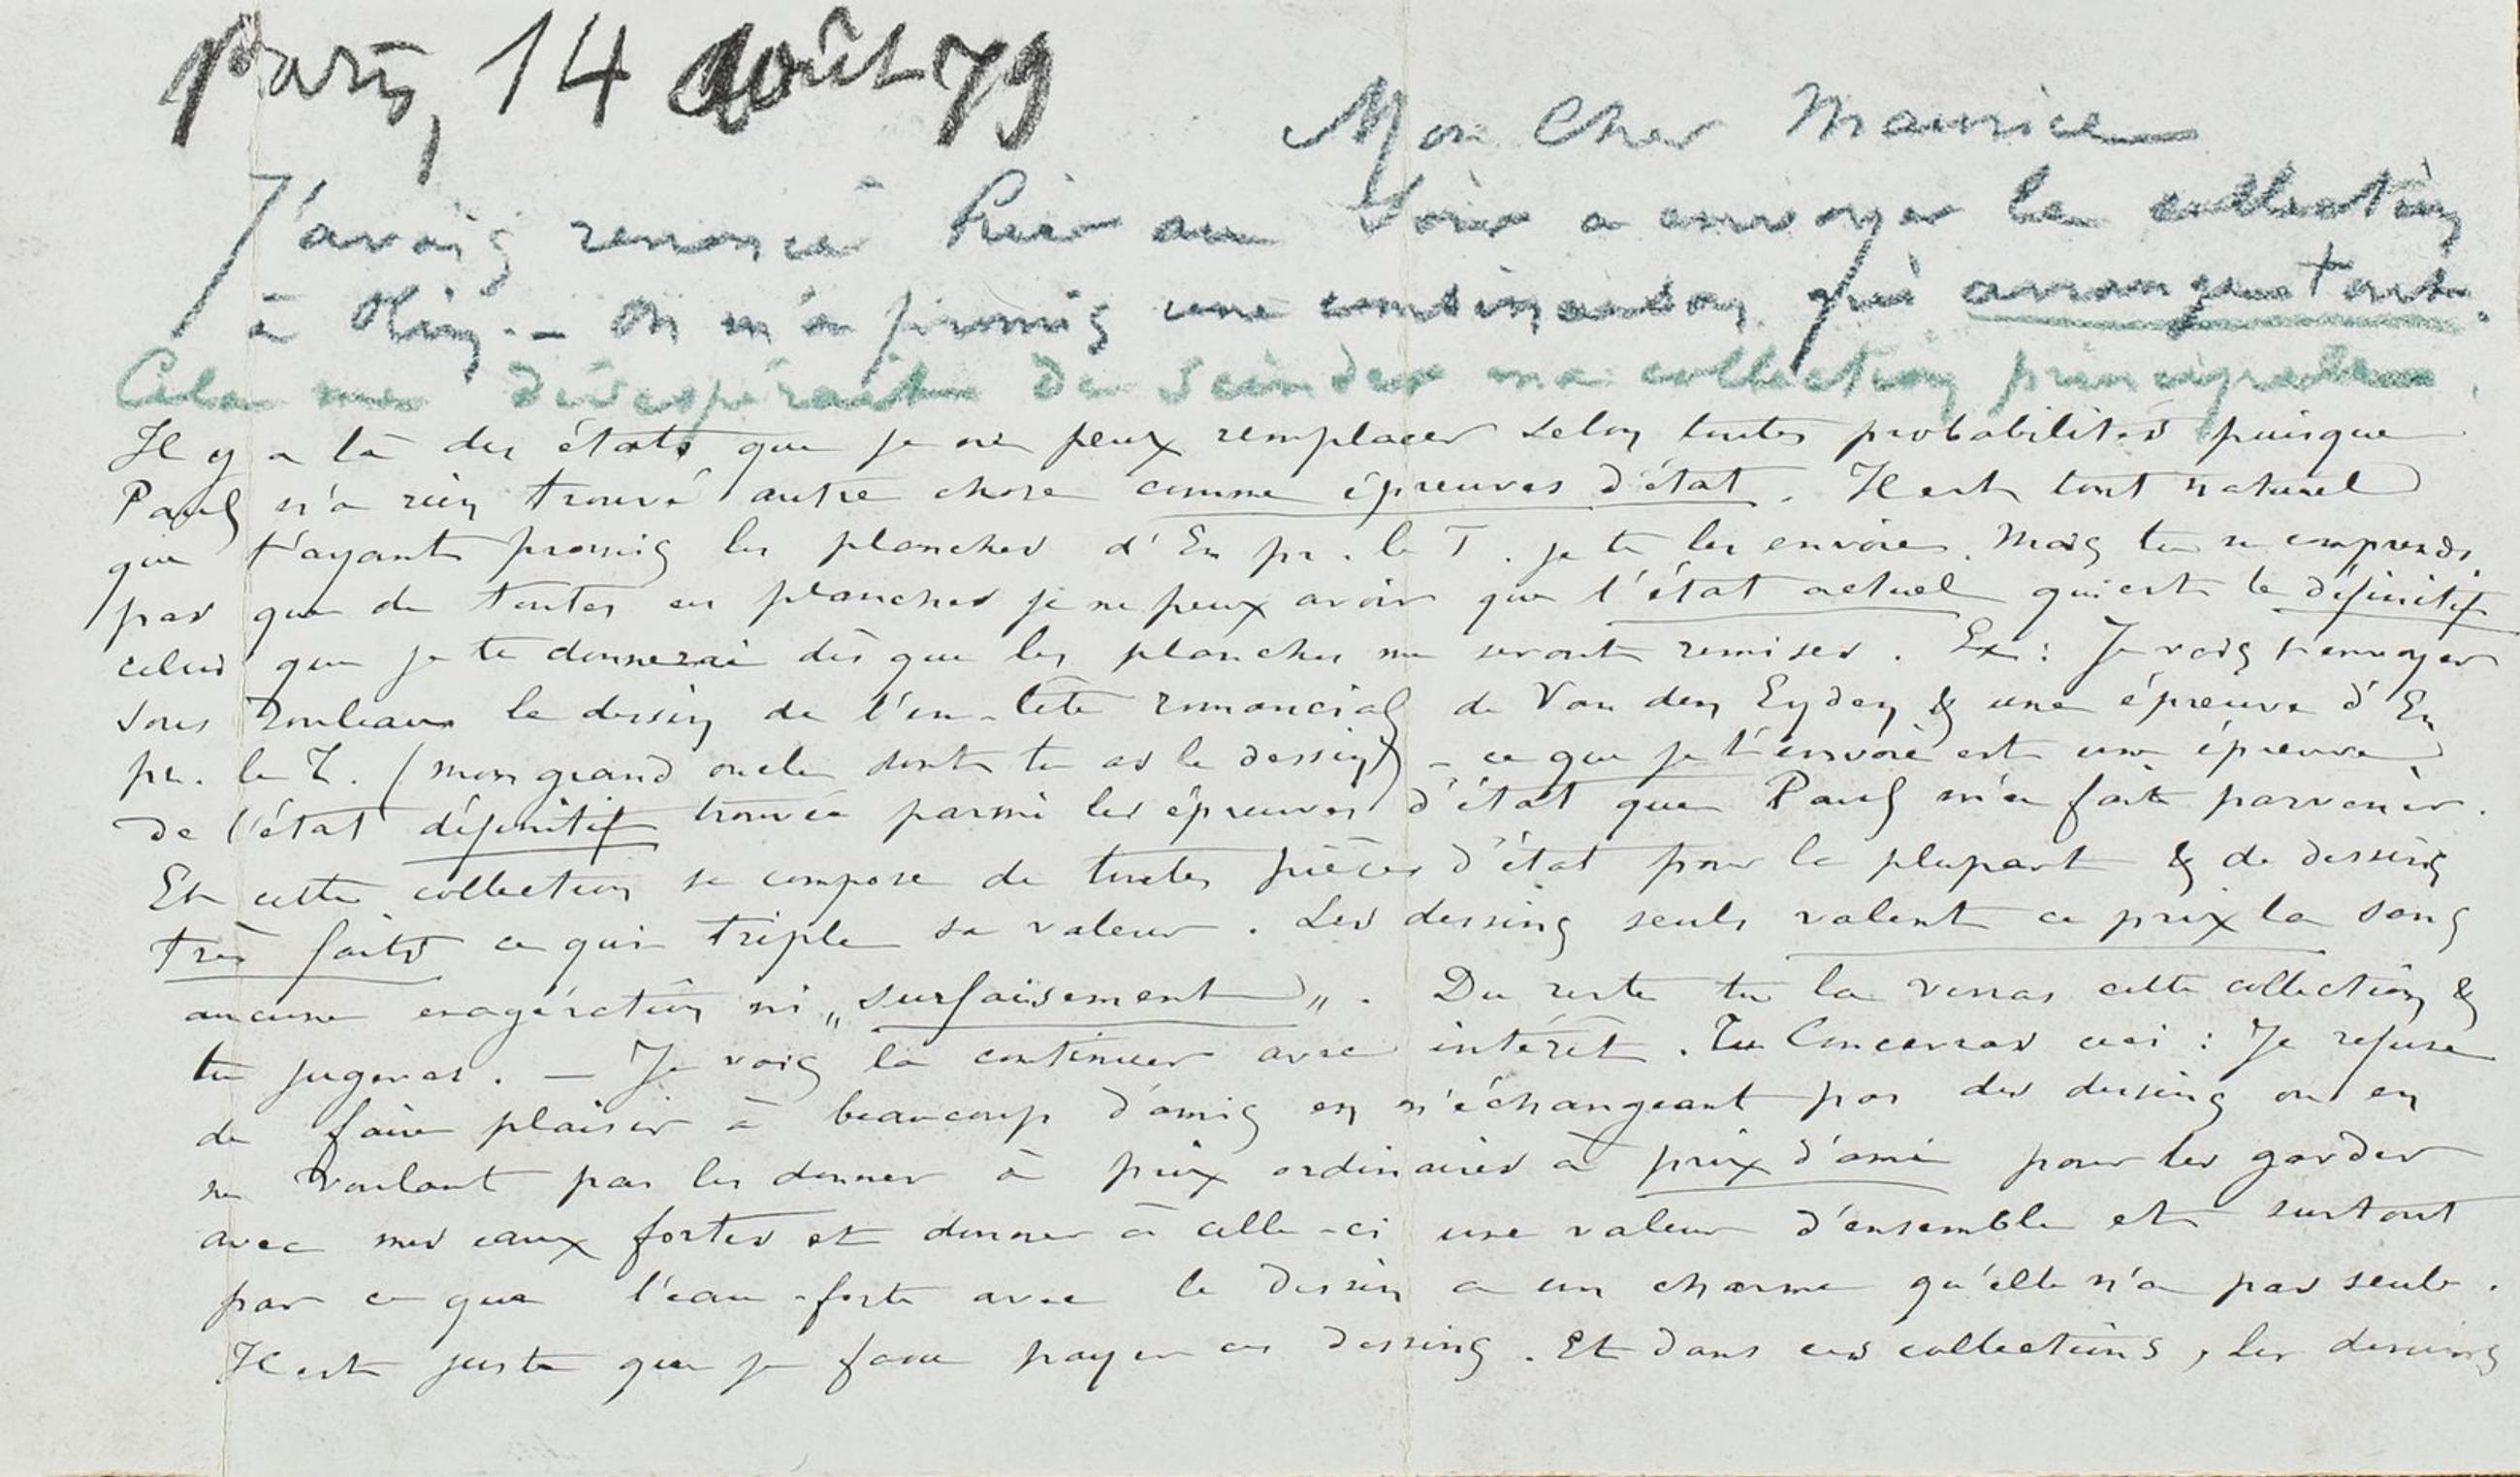 Paris, 14 Août 79
Mon Cher Maurice
J'avais renoncé hier au soir a envoyer la collection
à Oling. — On m'a promis une combinaison qui arrange tout.
Cela me désespérait de scinder ma collection principale.
Il y a là des états que je ne peux remplacer selon toutes probabilités puisque
Paul n'a rien trouvé autre chose comme épreuves d'état. Il est tout naturel
que t'ayant promis les planches d'En pr. le T. je te les envoie. Mais tu ne comprends
pas que de toutes ces planches je ne peux avoir que l'état actuel qui est le définitif
celui que je te donnerai dès que les planches me seront remises. Ex: Je vais t'envoyer
sous rouleau le dessin de l'en-tête romancial de Van den Eyden & une épreuve d'En
pr. le T. (mon grand oncle dont tu as le dessin) - ce que je t'envoie est une épreuve
de l'état définitif trouvée parmi les épreuves d'état que Paul m'a fait parvenir.
Et cette collection se compose de toutes pièces d'état pour la plupart & de dessins
très faits ce qui triple sa valeur. Les dessins seuls valent ce prix la sans
aucune exagération ni „surfaisement„. Du reste tu la verras cette collection &
tu jugeras. — Je vais la continuer avec intérêt. Tu Concevras ceci : Je refuse
de faire plaisir à beaucoup d'amis en n'échangeant pas des dessins ou en
ne voulant pas les donner à prix ordinaires a prix d'ami pour les garder
avec mes eaux fortes et donner à celle-ci une valeur d'ensemble et surtout
par ce que l'eau-forte avec le dessin a un charme qu'elle n'a pas seule.
Il est juste que je fasse payer ces dessins. Et dans ces collections, les dessins